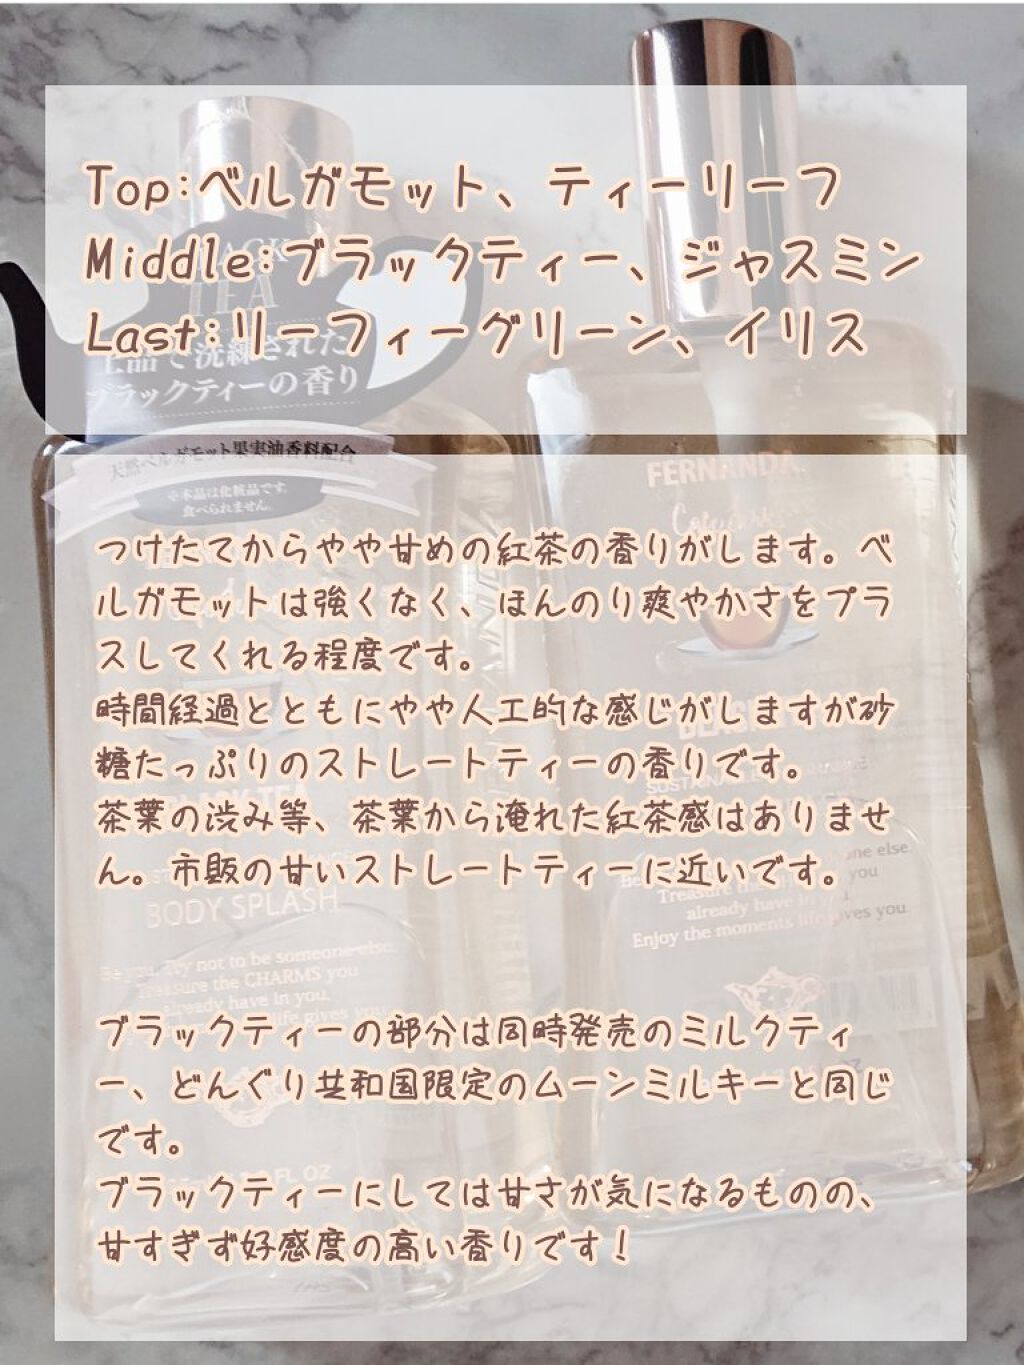 Top:ベルガモット、ティーリーフ
Middle:ブラックティー、ジャスミン
Last:リーフィーグリーン、イリス
TEA
上品で洗練された
ブラックティーの香り
天然ベルガモット果実油香料配合
※本品は化粧品です。
食べられません。
FERNANDA
つけたてからやや甘めの紅茶の香りがします。ベ
ルガモットは強くなく、ほんのり爽やかさをプラ
スしてくれる程度です。
時間経過とともにやや人工的な感じがしますが砂
糖たっぷりのストレートティーの香りです。
茶葉の渋み等、茶葉から淹れた紅茶感はありませ
ん。市販の甘いストレートティーに近いです。
BODY SPLASH
Be you. Try not to be someone else.
Treasure the CHARMS you
already have in you.
life gives you.
one else.
Treasure the you
already have in you.
Enjoy the moments life gives you.
ブラックティーの部分は同時発売のミルクティ
ー、どんぐり共和国限定のムーンミルキーと同じ
です。
FL OZ
ブラックティーにしては甘さが気になるものの、
甘すぎず好感度の高い香りです！